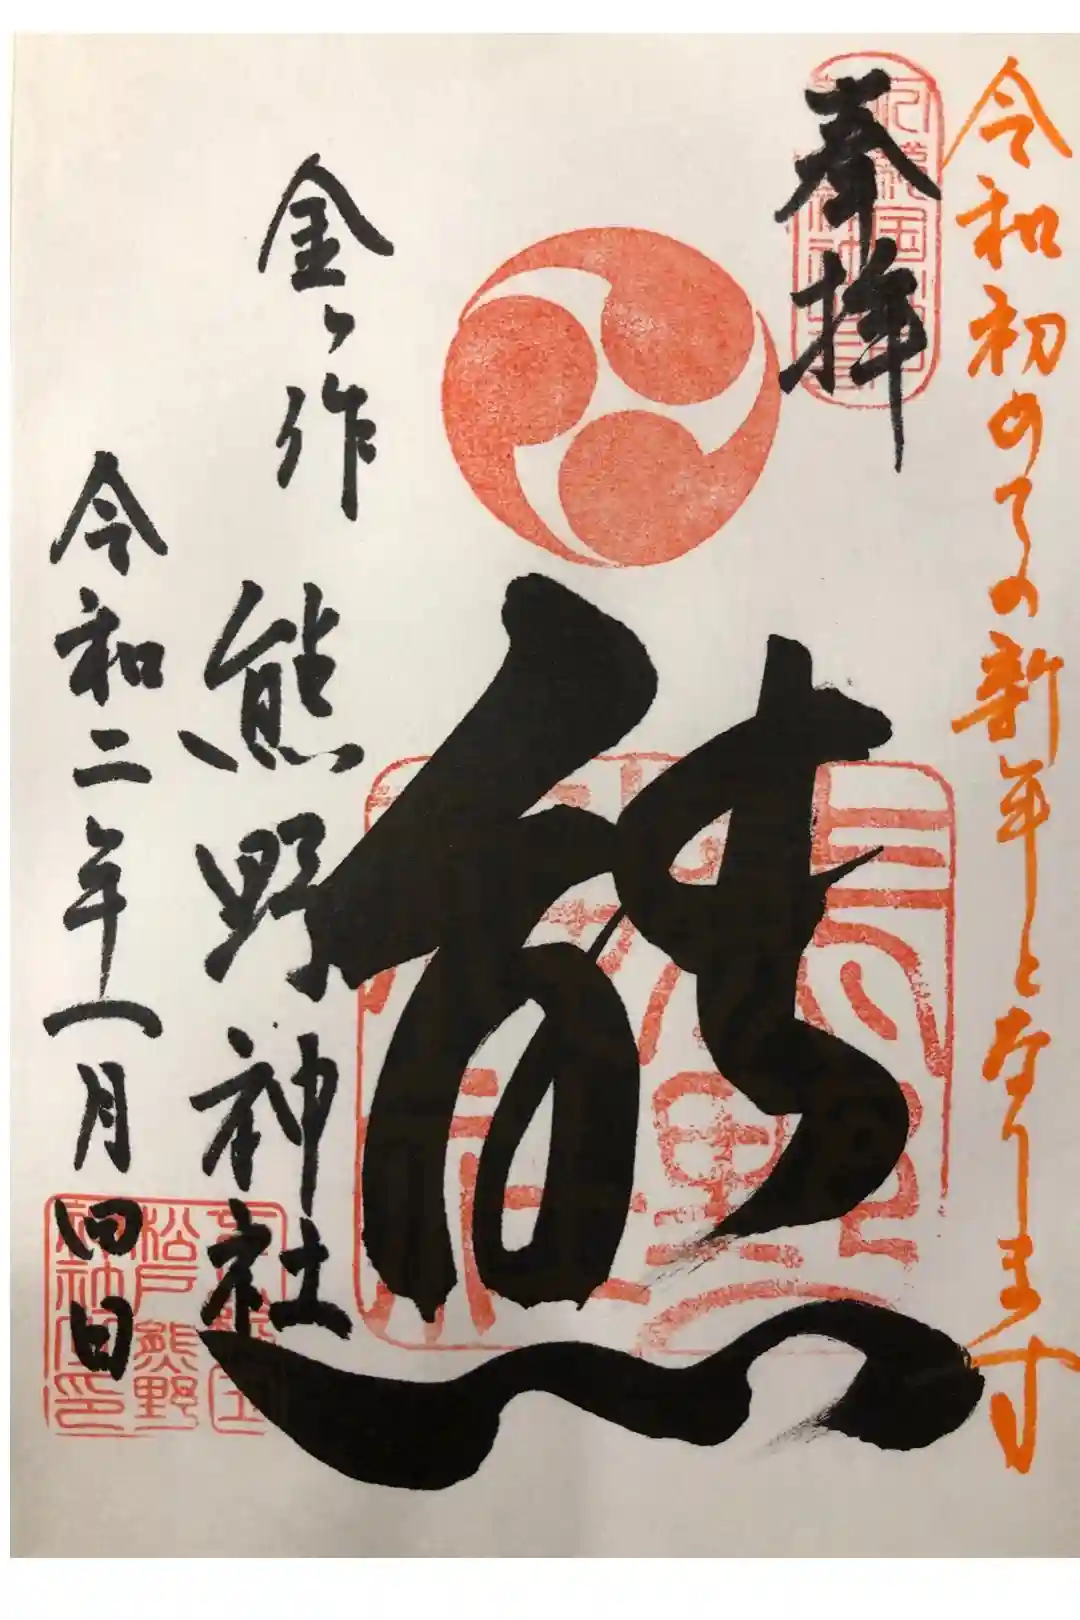 令和初めての新年となります
奉拝
熊
金ヶ作
熊野神社
令和二年一月四日
松戸熊野